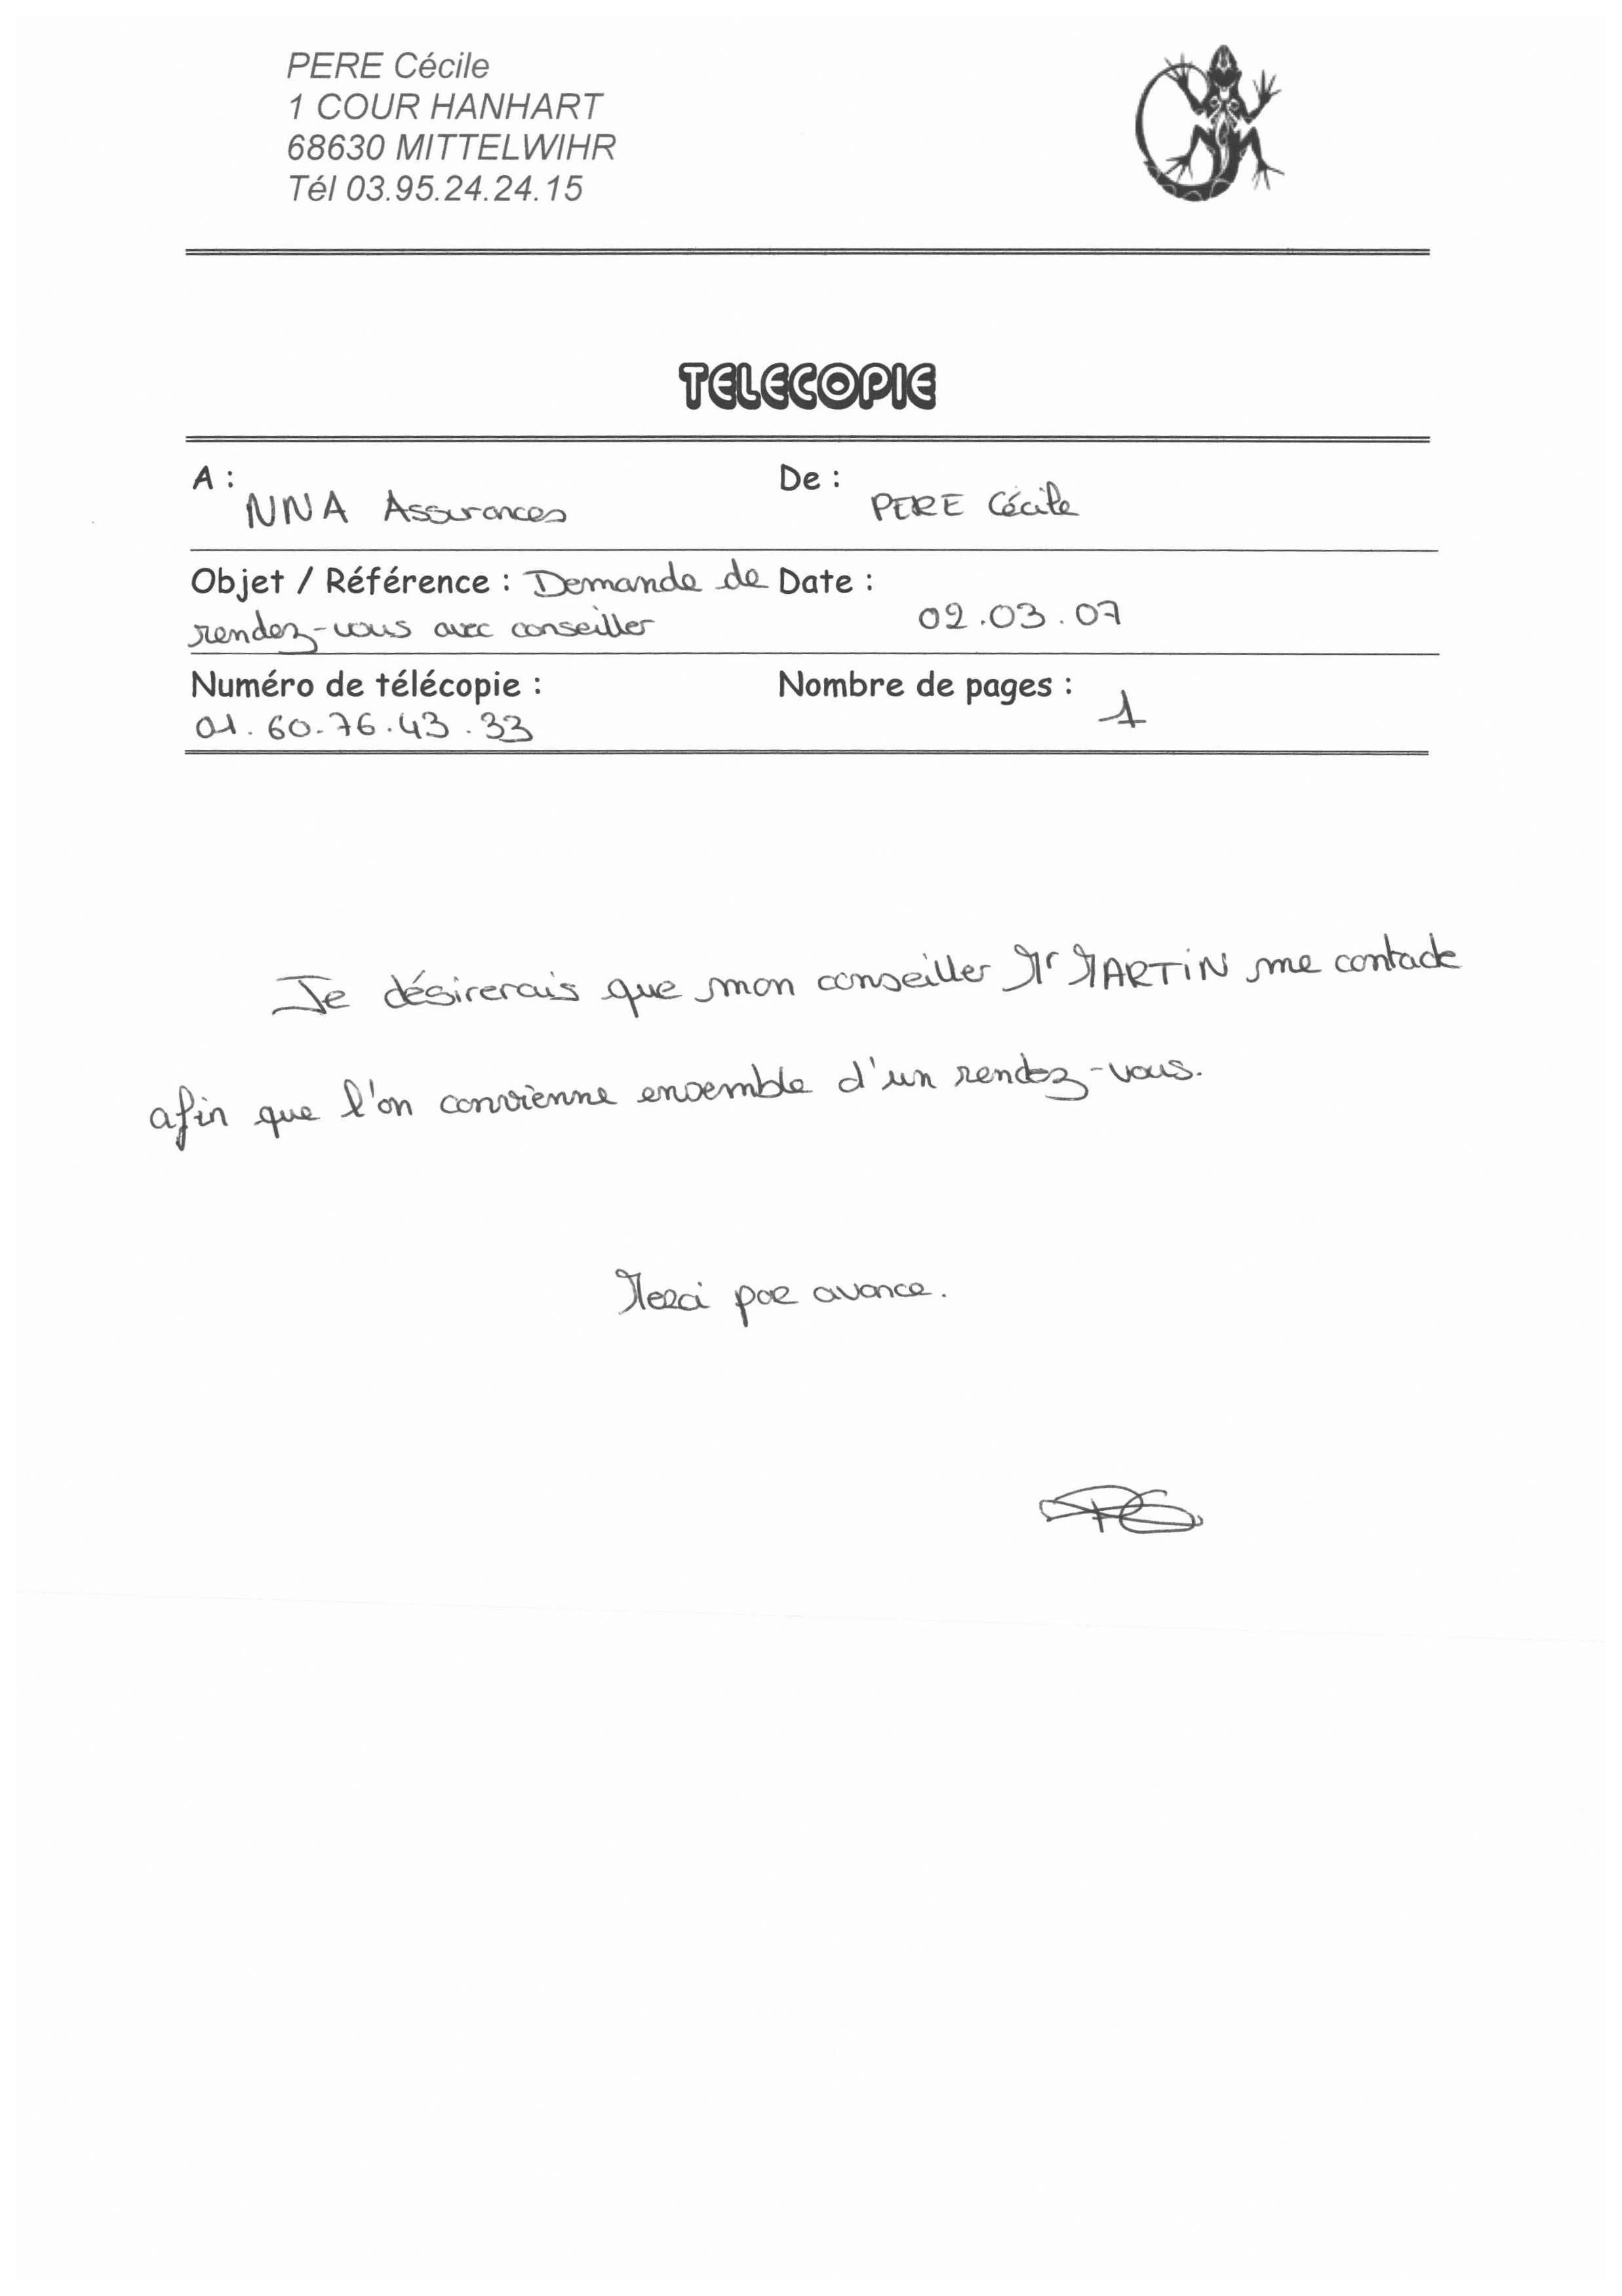 PERE Cécile
1 COUR HANHART
68630 MITTELWIHR
Tél 03.95.24.24.15
TELECOPIE
A : NNA Assurances
De : PERE Cécile
Objet / Référence : Demande de
rendez-vous avec conseiller
Date : 02.03.07
Numéro de télécopie :
01.60.76.43.33
Nombre de pages : 1
Je désirerais que mon conseiller Mr MARTIN me contacte
afin que l'on convienne ensemble d'un rendez-vous.
Merci par avance.